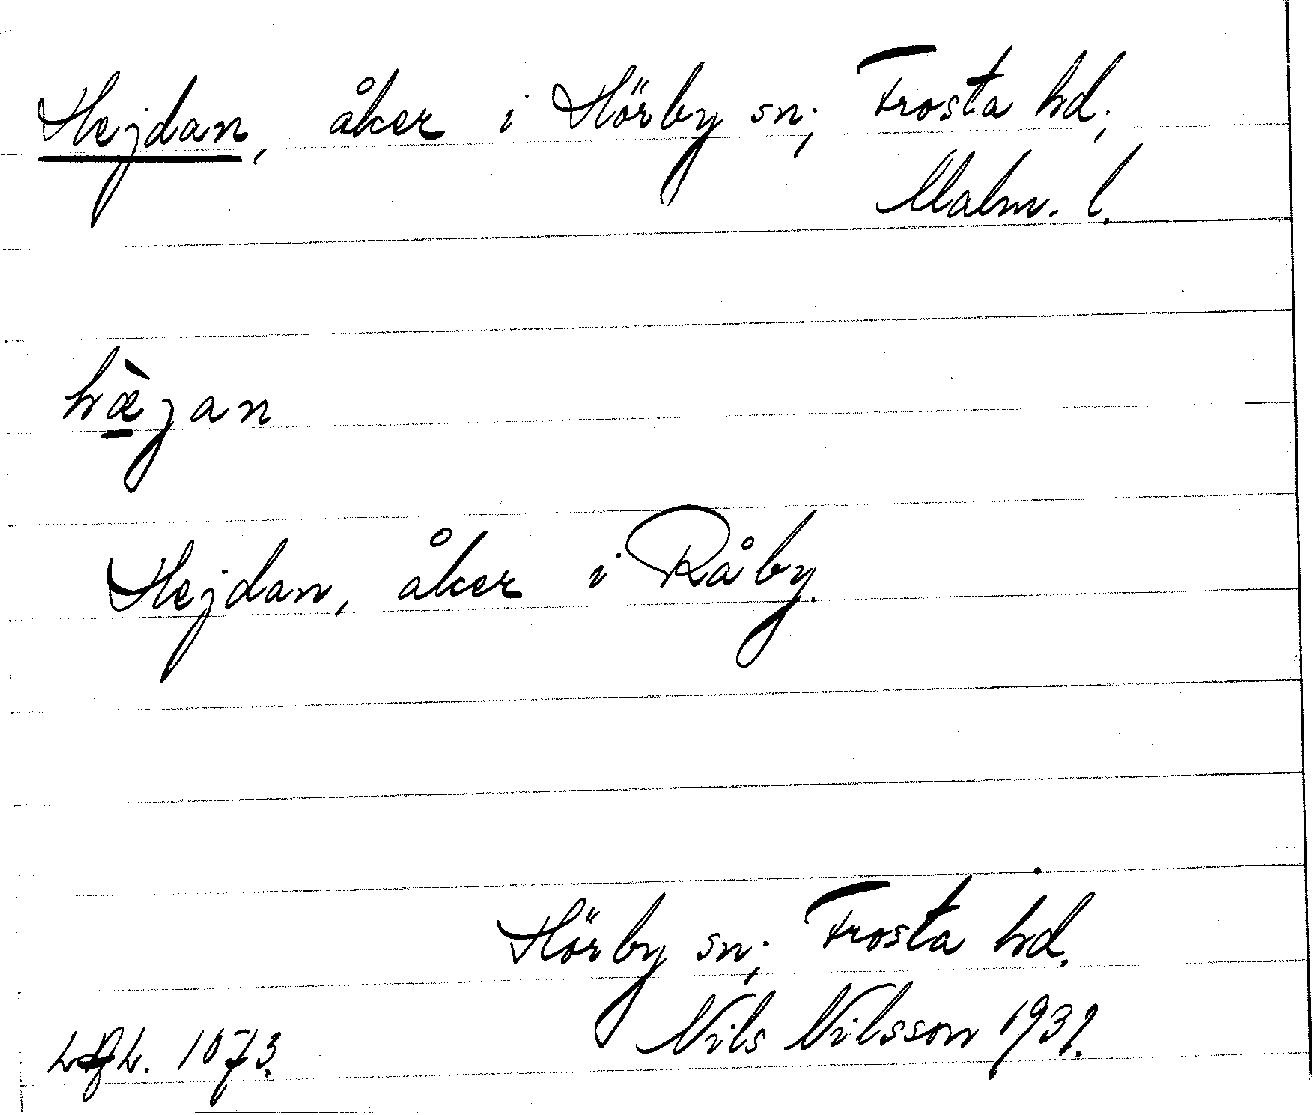 Hejdan, åker i Hörby sn; Frosta hd;
Malm. l.
hæ̀jan
Hejdan, åker i Råby.
Hörby sn; Frosta hd.
Nils Nilsson 1932.
1073.